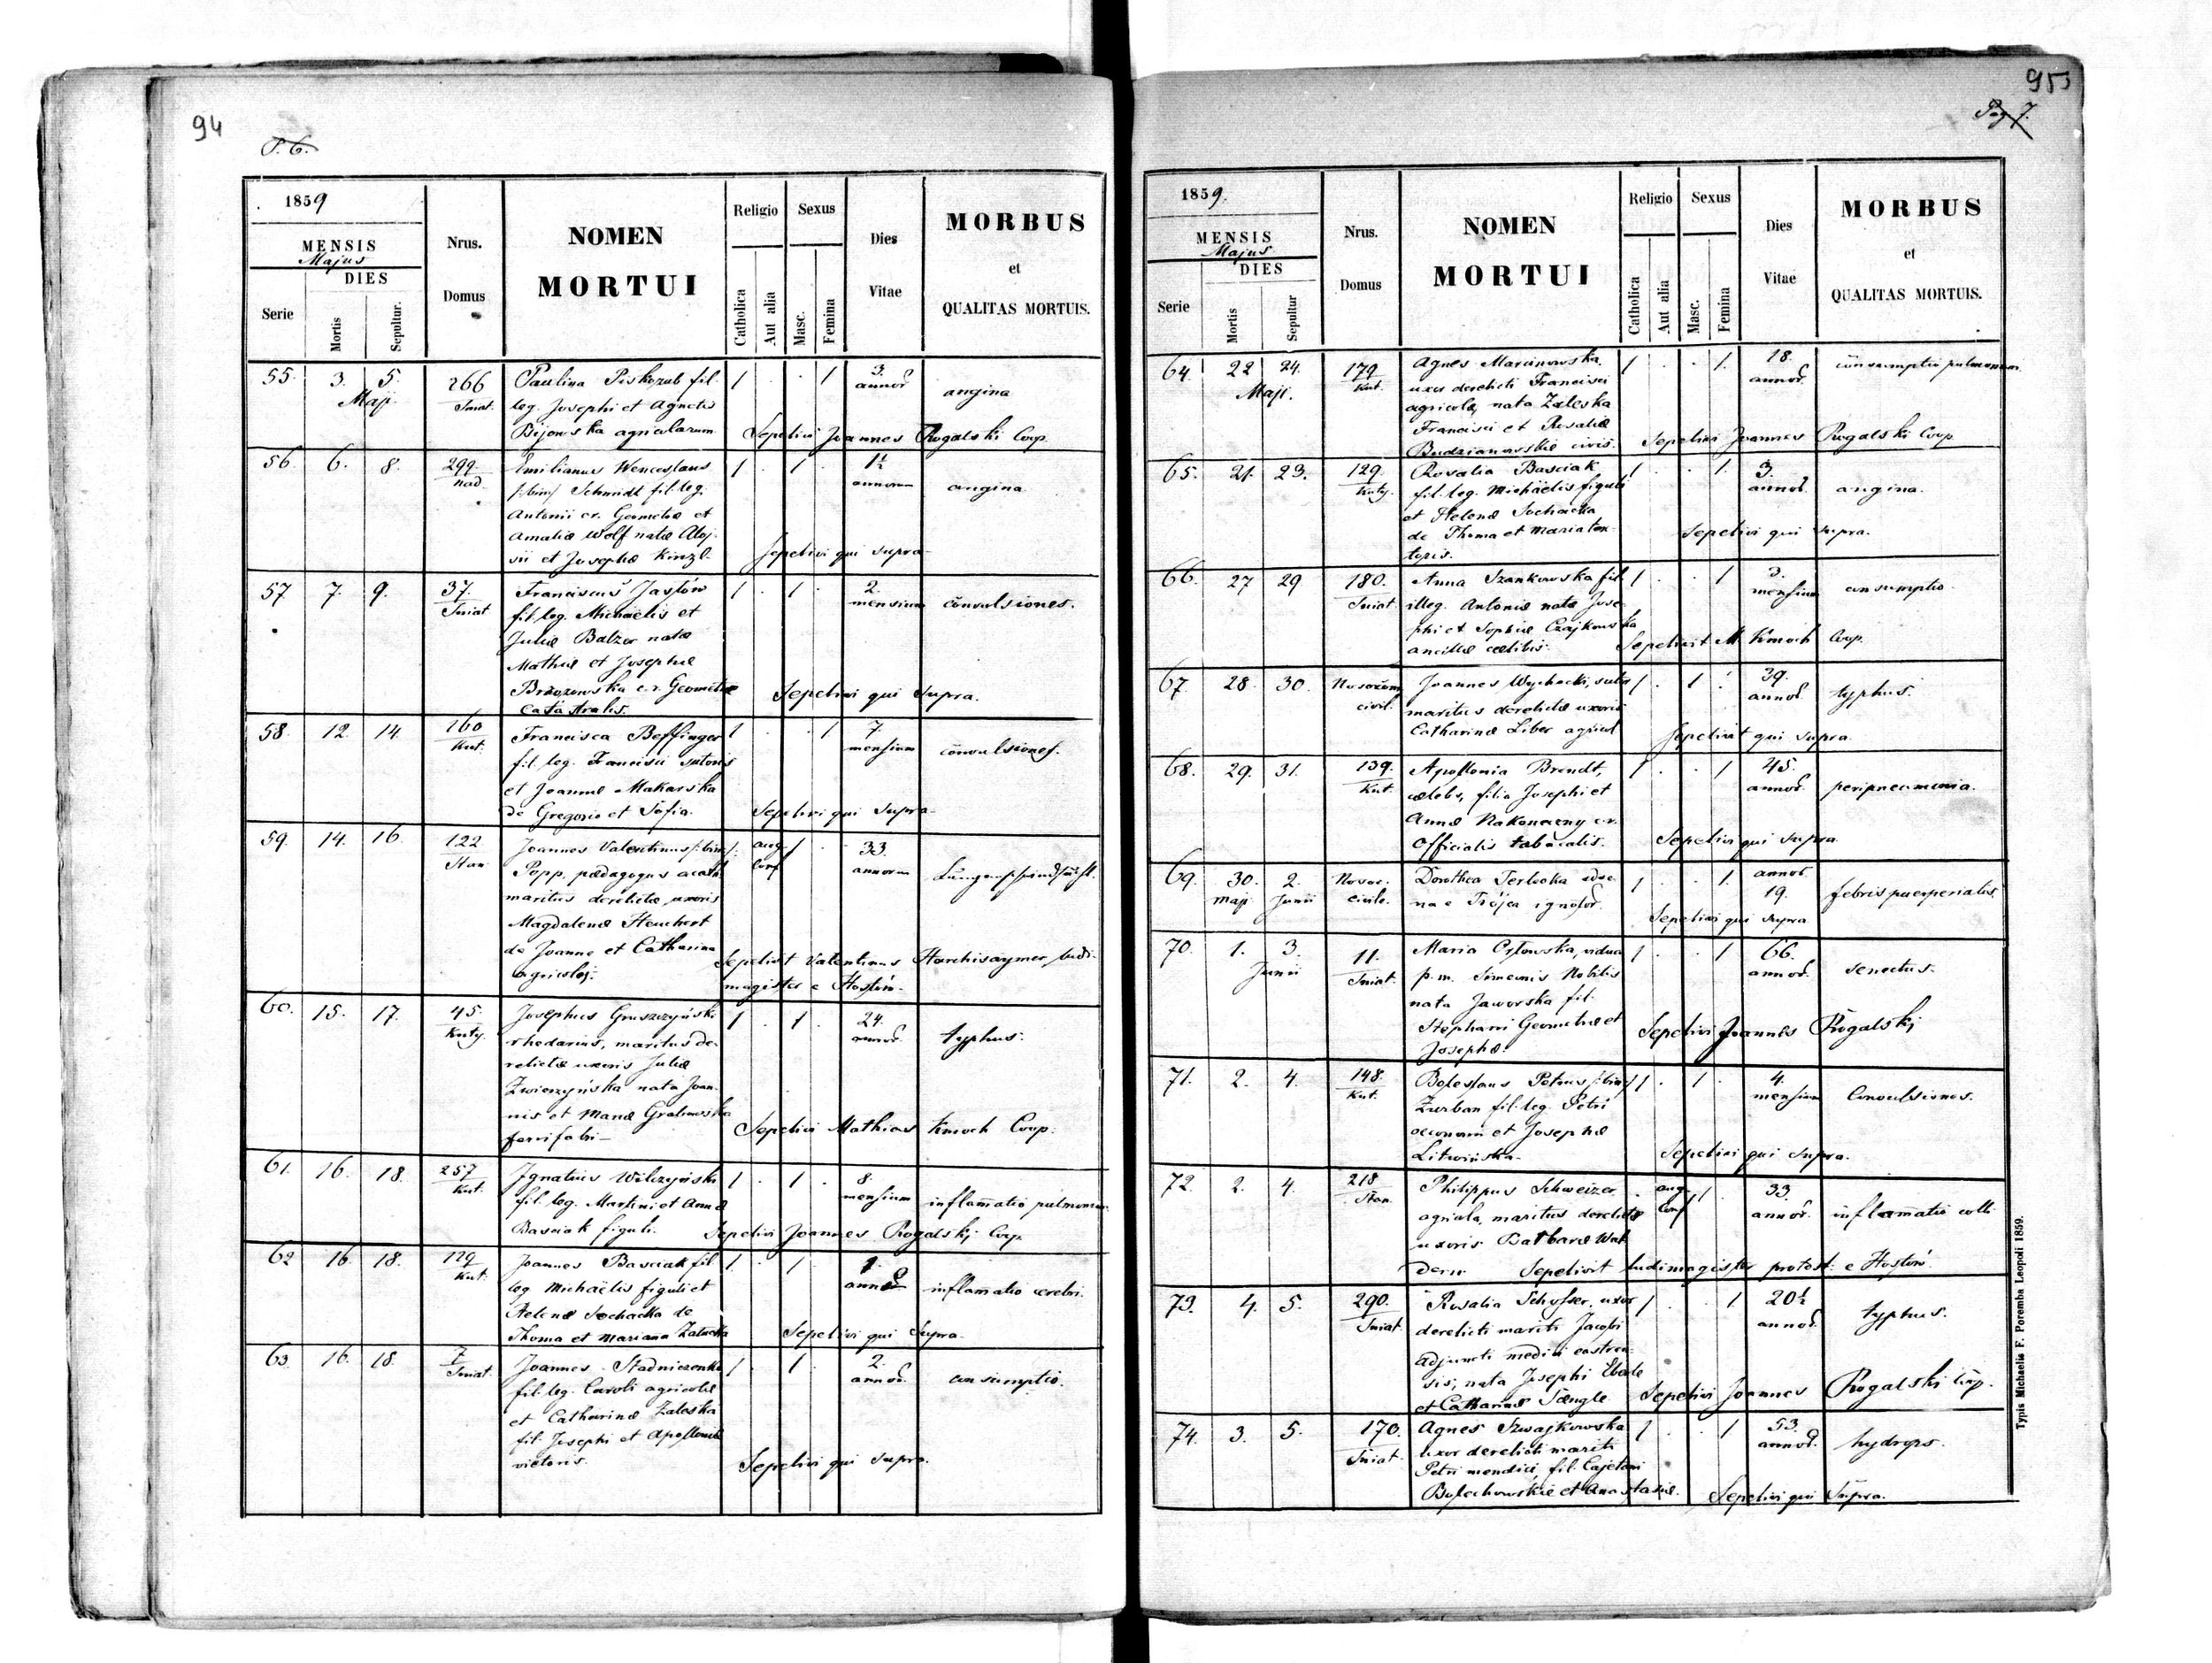 94
P. 6.
1859
MENSIS
Majus
DIES
Serie
Mortis
Sepultur.
Nrus.
Domus
NOMEN
MORTUI
Religio
Catholica
Aut alia
Sexus
Masc.
Femina
Dies
Vitae
MORBUS
et
QUALITAS MORTUIS.
55. 3. 5. 266 Paulina Piskozub fil. 1 . . 1 3.
Maji Sniat. leg. Josephi et Agnetis annor. angina
Bijowska agricolarum Sepelivi Joannes Rogalski Coop.
56. 6. 8. 299. Emilianus Wenceslaus 1 . 1 . 1½
nad. /:bin:/ Schmidt fil. leg. annorum angina.
Antonii cr. Geometræ et
Amaliæ Wolf natæ Aloj-
sii et Josephæ Kinzl. Sepelivi qui supra
57. 7. 9. 37. Franciscus Jasłów 1 . 1 . 2.
Sniat fil. leg. Michaëlis et mensium convulsiones.
Juliæ Balzar natæ
Mathiæ et Josephæ
Brzozowska c.r. Geometræ Sepelivi qui supra.
Catastralis.
58. 12. 14. 160 Francisca Beffinger 1 . . 1 7.
Kut. fil. leg. Francisci sutoris mensium convulsiones.
et Joannæ Makarska
de Gregorio et Sofia. Sepelivi qui supra
59. 14. 16. 122 Joannes Valentinus /:bin:/ aug. 1 . 33.
Stan Popp, pædagogus acath. Conf annorum Lungenschwindsucht.
maritus derelictæ uxoris
Magdalenæ Heuchert
de Joanne et Catharina Sepelivit Valentinus ludi-
agricolis. magister e Hostów.
60. 15. 17. 45. Josephus Gruszczyński 1 . 1 . 24.
Kuty. rhedarius, maritus de- annor. typhus.
relictæ uxoris Juliæ
Zwierzyńska nata Joan-
nis et Mariæ Grabowska Sepelivi Mathias Kmoch Coop.
ferrifabri
61. 16. 18. 257 Ignatius Wilczyński 1 . 1 . 8.
Kut. fil. leg. Martini et Annæ mensium inflamatio pulmonum
Basciak figuli. Sepelivi Joannes Rogalski Coop.
62 16. 18. 129 Joannes Basciak fil 1 . 1 . 1.
Kut. leg Michaëlis figuli et inflamatio cerebri.
Helenæ Sochacka de
Thoma et Marianna Sepelivi qui supra.
63. 16. 18. 7 Joannes Stadniczenko 1 . 1 . 2.
Sniat. fil. leg. Caroli agricolæ annor. consumptio.
et Catharinæ Zaleska
fil. Josephi et Apolloniæ
vietoris. Sepelivi qui supra.
953
Pag 7.
1859.
MENSIS
Majus
DIES
Serie
Mortis
Sepultur
Nrus.
Domus
NOMEN
MORTUI
Religio
Catholica
Aut alia
Sexus
Masc.
Femina
Dies
Vitae
MORBUS
et
QUALITAS MORTUIS.
64. 22 24. 179 Agnes Marcinowska. 1 . . 1. 18. consumptio pulmonum
Maji. Kut. uxor derelicti Francisci annor.
agricolæ, nata Zaleska
Francisci et Rosaliæ
Budzianowskie civis. Sepelivi Joannes Rogalski Coop
65. 21. 23. 129. Rosalia Basciak 1 . . 1. 3.
Kuty. fil. leg. Michaëlis figuli annor. angina.
et Helenæ Sochacka
de Thoma et Maria ton- Sepelivi qui supra.
toris.
66. 27 29 180. Anna Szankowska fil 1 . . 1 3.
Sniat illeg. Antoniæ nata Jose- mensium consumptio
phi et Sophiæ Czajkowska
ancillæ cælibis. Sepelivit M. Kmoch Coop.
67. 28. 30. Joannes Wychocki, sutor 1 . 1 . 39.
civil. maritus derelictæ uxoris annor. typhus.
Catharinæ Liber agricol Sepelivit qui supra.
68. 29. 31. 139. Apollonia Brendt, 1 . . 1 45.
Kut. cælebs, filia Josephi et annor. peripneumonia.
Annæ Nakoneczny c.r.
Officialis tabacalis. Sepelivi qui supra.
69. 30. 2. Dorothea Terlecka adve- 1 . . 1. annor.
maji Junii civile. na e Trójca ignobil. 19. febris puerperialis.
Sepelivi qui supra
70. 1. 3. 11. Maria Orłowska, vidua 1 . . 1 66.
Junii Sniat. p.m. Simeonis Nobilis annor. senectus.
nata Jaworska fil.
Stephani Geometræ et Sepelivi Joannes Rogalski
Josephæ.
71. 2. 4. 148. Boleslaus Petrus /:bin:/ 1 . 1 . 4.
Kut. Zurban fil. leg. Petri mensium Convulsiones.
œconomi et Josephæ
Litwińska. Sepelivi qui supra.
72. 2. 4. 218 Philippus Schweizer . aug. 1 . 33.
Stan. agricola, maritus derelictæ Conf annor. inflamatio colli
uxoris Barbaræ Wal
deru Sepelivit ludimagister protest: e Hostów.
73. 4. 5. 290. Rosalia Schosser, uxor 1 . . 1. 20½
Sniat. derelicti mariti Jacobi annor. typhus.
adjuncti medici castren-
sis, nata Josephi
et Catharinæ Tængle Sepelivi Joannes Rogalski Coop.
74. 3. 5. 170. Agnes Szwajkowska 1 . . 1 53.
Sniat. uxor derelicti mariti annor. hydrops.
Petri mendici, fil. Cajetani
Bolechowskie et Anastasiæ. Sepelivi qui supra.
Typis Michaelis F. Poremba Leopoli 1859.